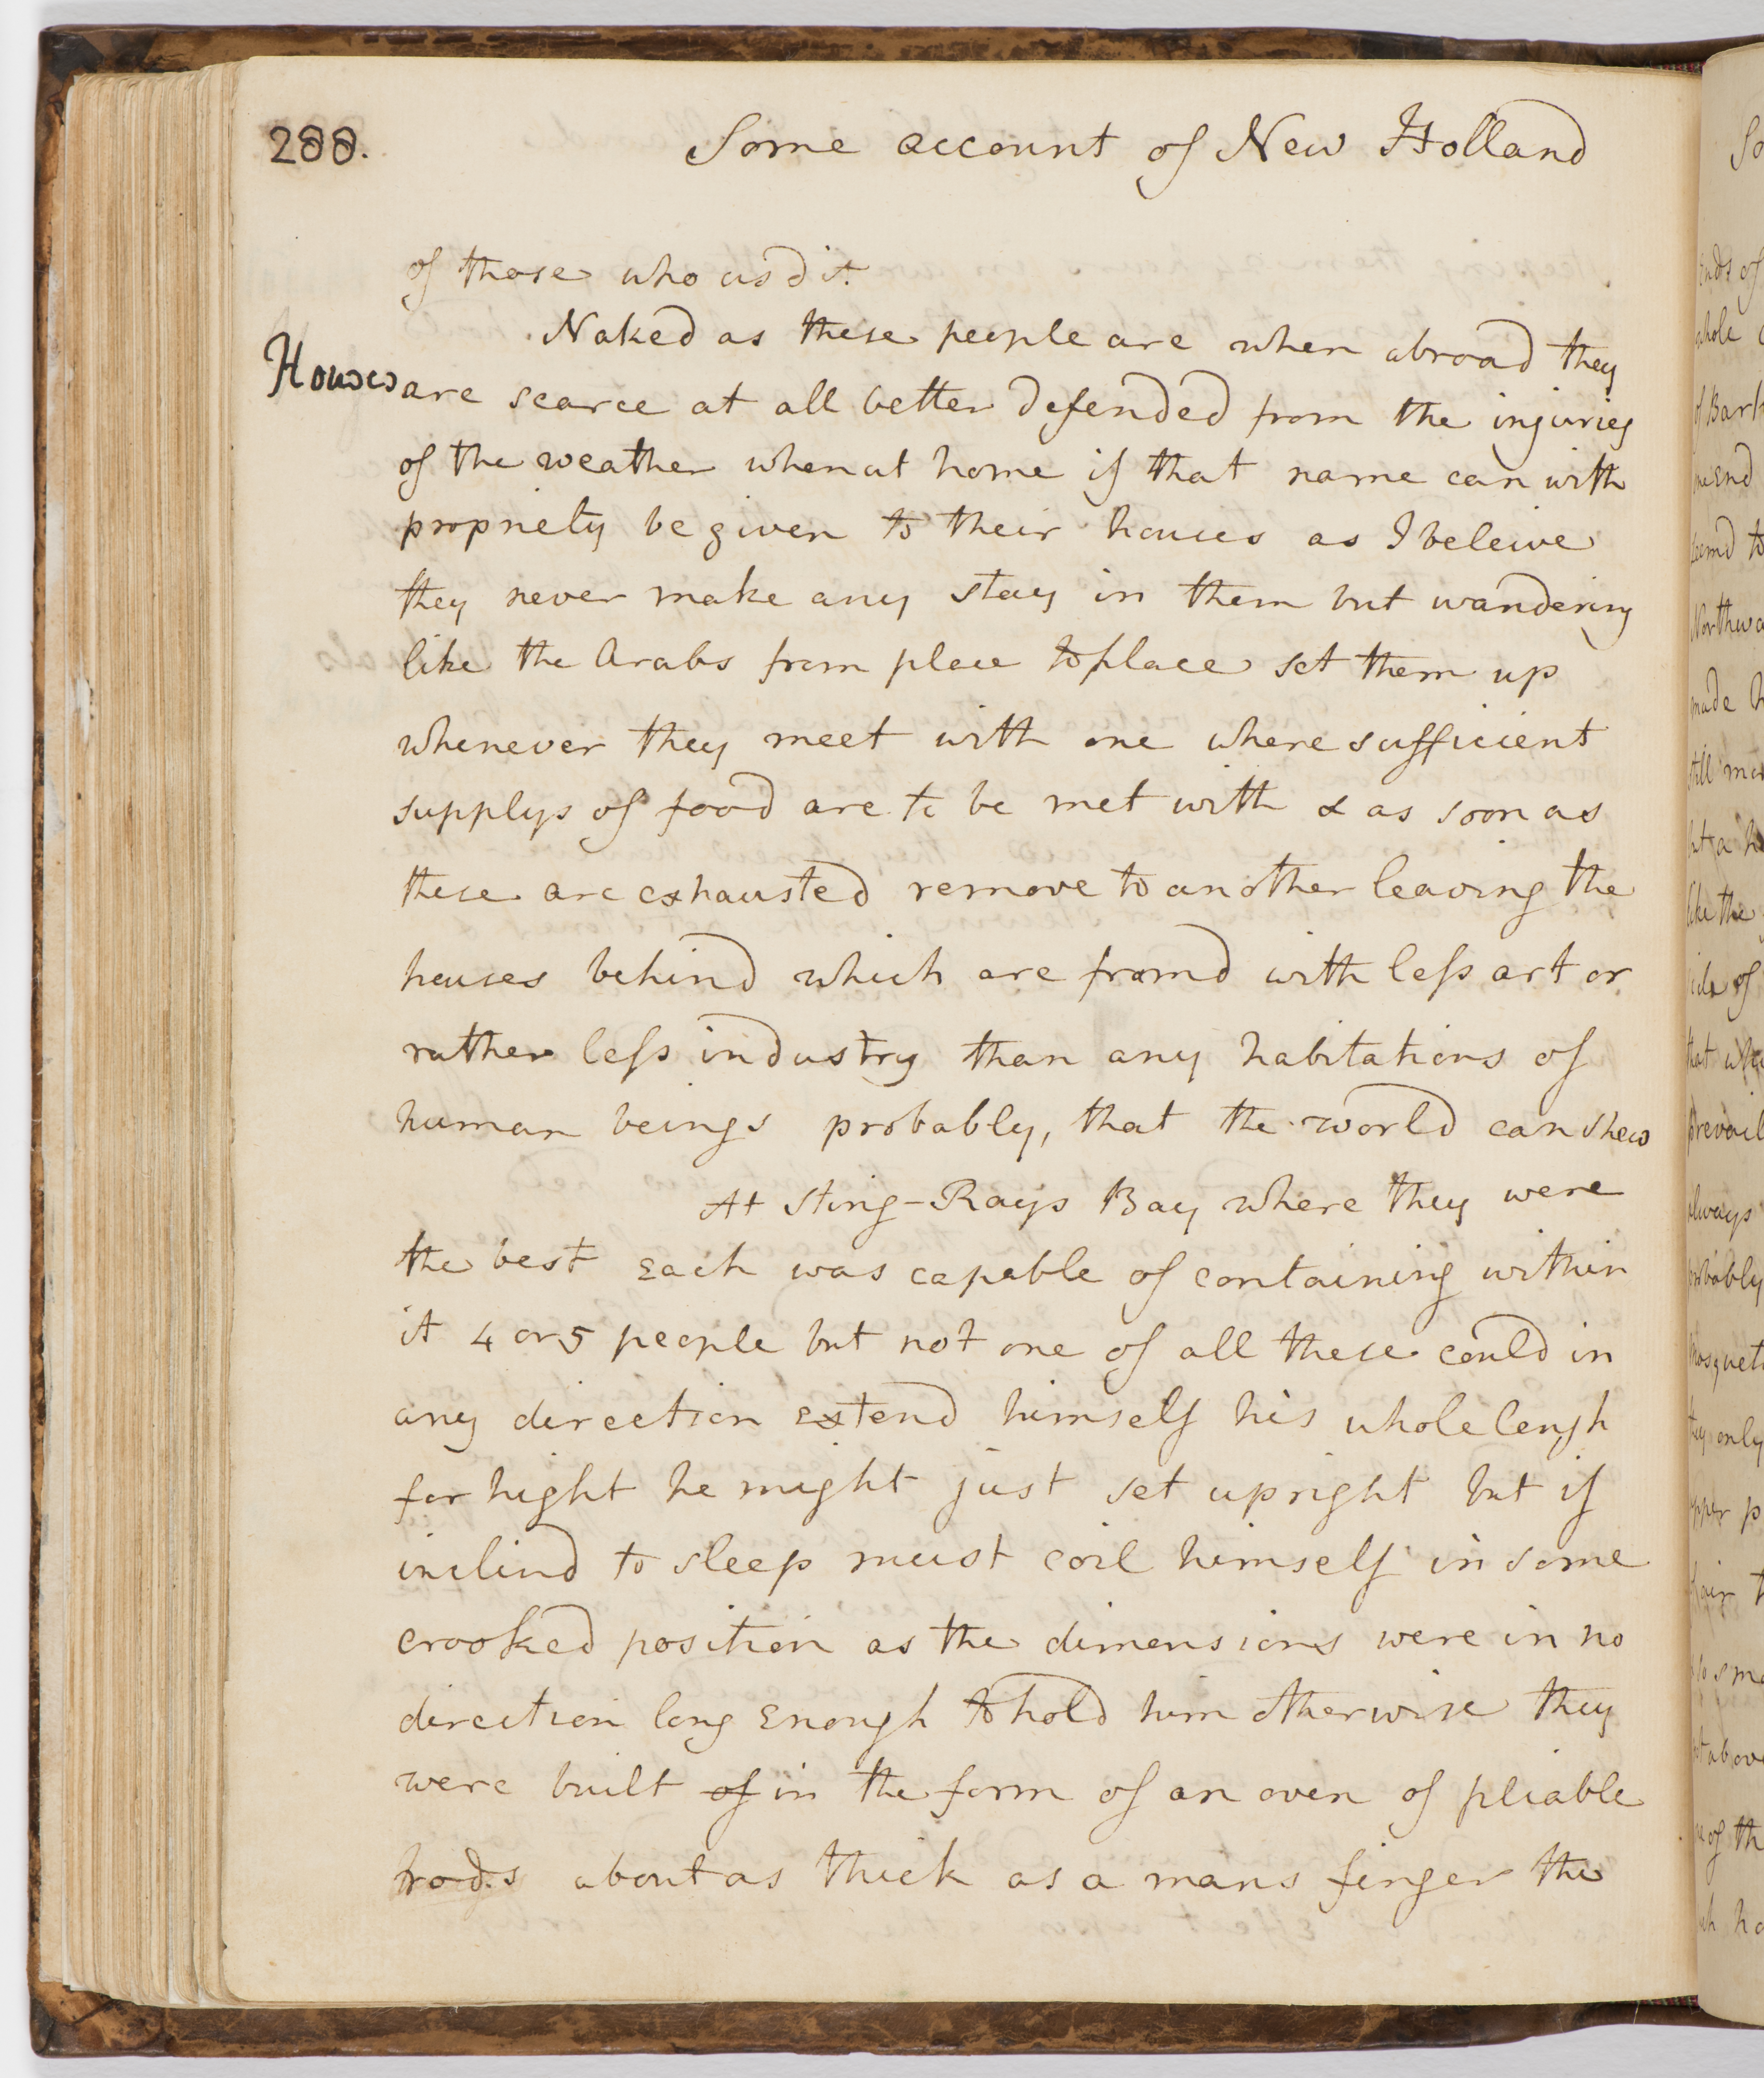 288.
Some account of New Holland
of those who usd it.
Naked as these people are when abroad they
Houses
are scarce at all better defended from the injuries
of the weather when at home if that name can with
propriety be given to their houses as I beleive
they never make any stay in them but wandering
like the Arabs from place to place set them up
whenever they meet with one where sufficient
supplys of food are to be met with & as soon as
these are exhausted remove to another leaving the
houses behind which are framd with less art or
rather less industry than any habitations of
human beings probably, that the world can shew
At Sting-Rays Bay where they were
the best Each was capable of containing within
it 4 or 5 people but not one of all these could in
any direction Extend himself his whole lengh
for hight he might just set upright but if
inclind to sleep must coil himself in some
crooked position as the dimensions were in no
direction long Enough to hold him otherwise they
were built of in the form of an oven of pliable
rods about as thick as a mans finger the